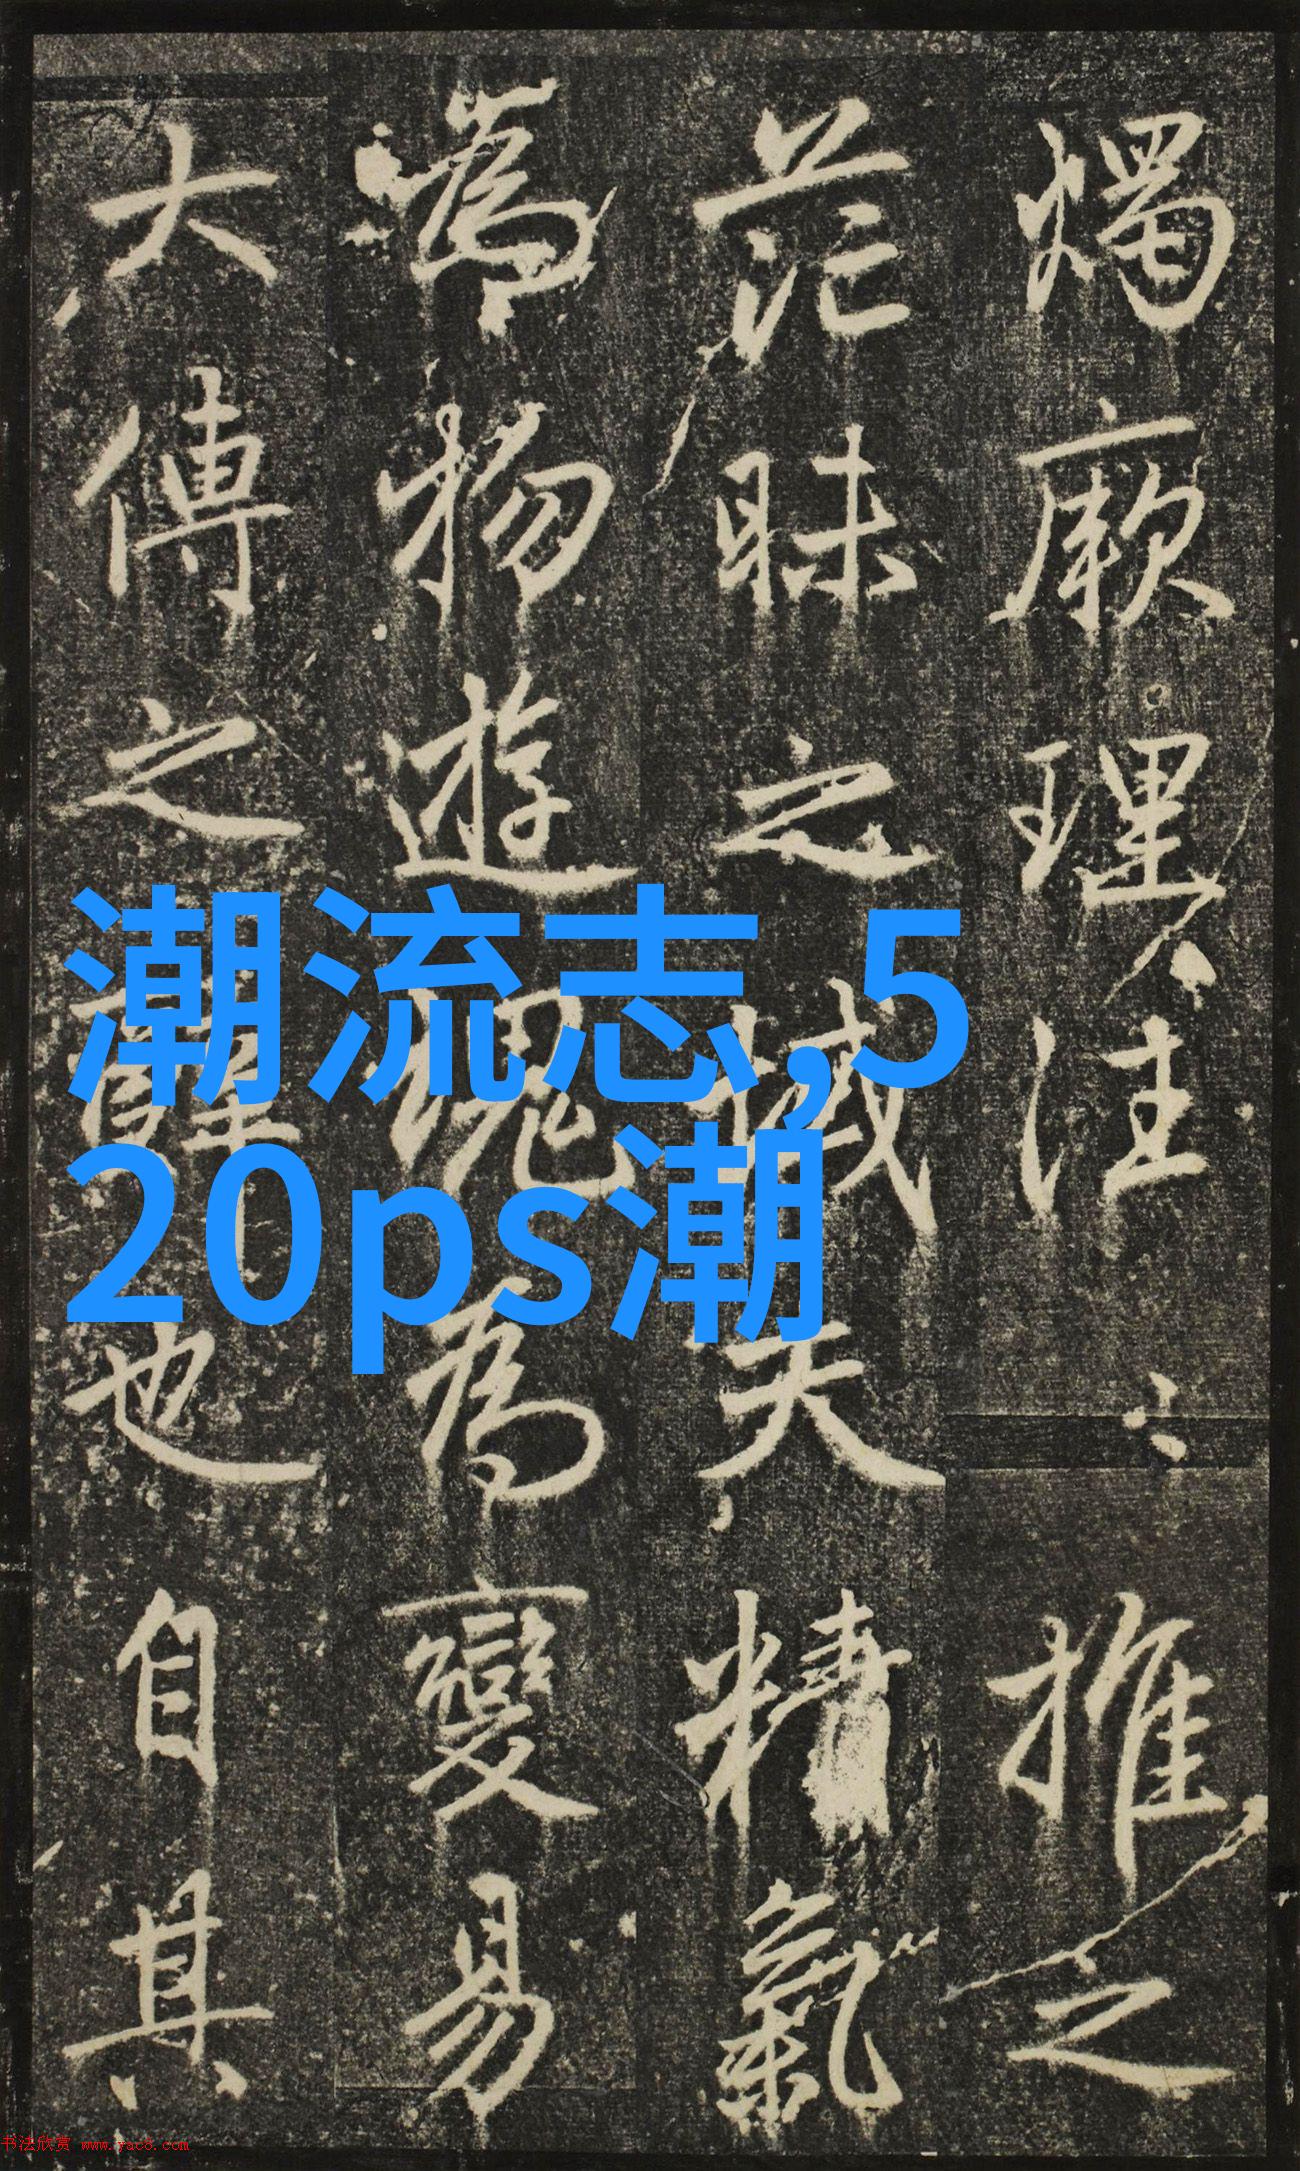 燭厥理注推之
茫昧之域夫精氣
為物遊魂為變易
大傳之辭也自其
潮流志,5
20ps潮
书法欣赏 www.yac8.com